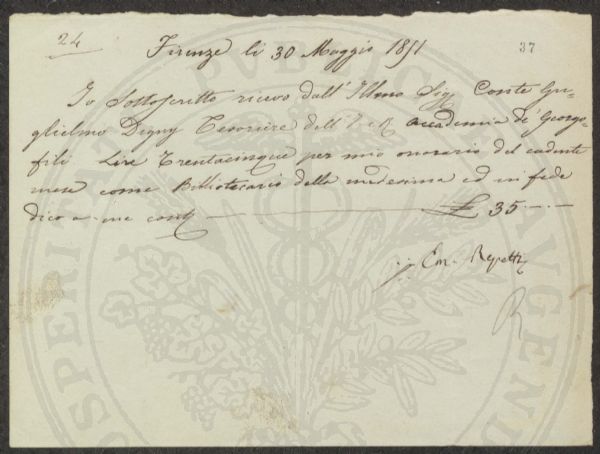 24
Firenze li 30 Maggio 1851
37
Io Sottoscritto ricevo dall' Illmo Sig Conte Gu=
glielmo Digny Tesoriere dell' I. e R. Accademia de Georgo=
fili Lire Trentacinque per mio onorario del cadente
mese come Bibliotecario della medesima ed in fede
dico a me cont £ 35
Em. Repetti
R
PROSPERITATI PUBLICAE AUGENDAE